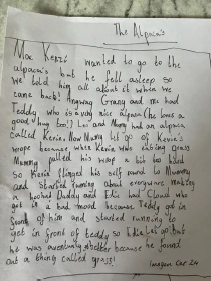 The Alpaca's
Max Kenzi wanted to go to the
alpaca's but he fell asleep so
we told him all about it when we
came back! Anyway Grany and me had
Teddy who is a very nice alpaca (he loves a
good hug too!) Loi and Mummy had an alpaca
called Kevin. Now Mummy let go of Kevin's
rope because when Kevin was eating grass
Mummy pulled his rope a bit too hard
so Kevin flinged his self round to Mummy
and started running about everyware making
a Daddy and Edie had Cloud who
got in a bad mood because Teddy got in
front of him and started running to
get in front of teddy so Edie let go but
he was eventualy better because he found
out a thing called grass!
Imogen